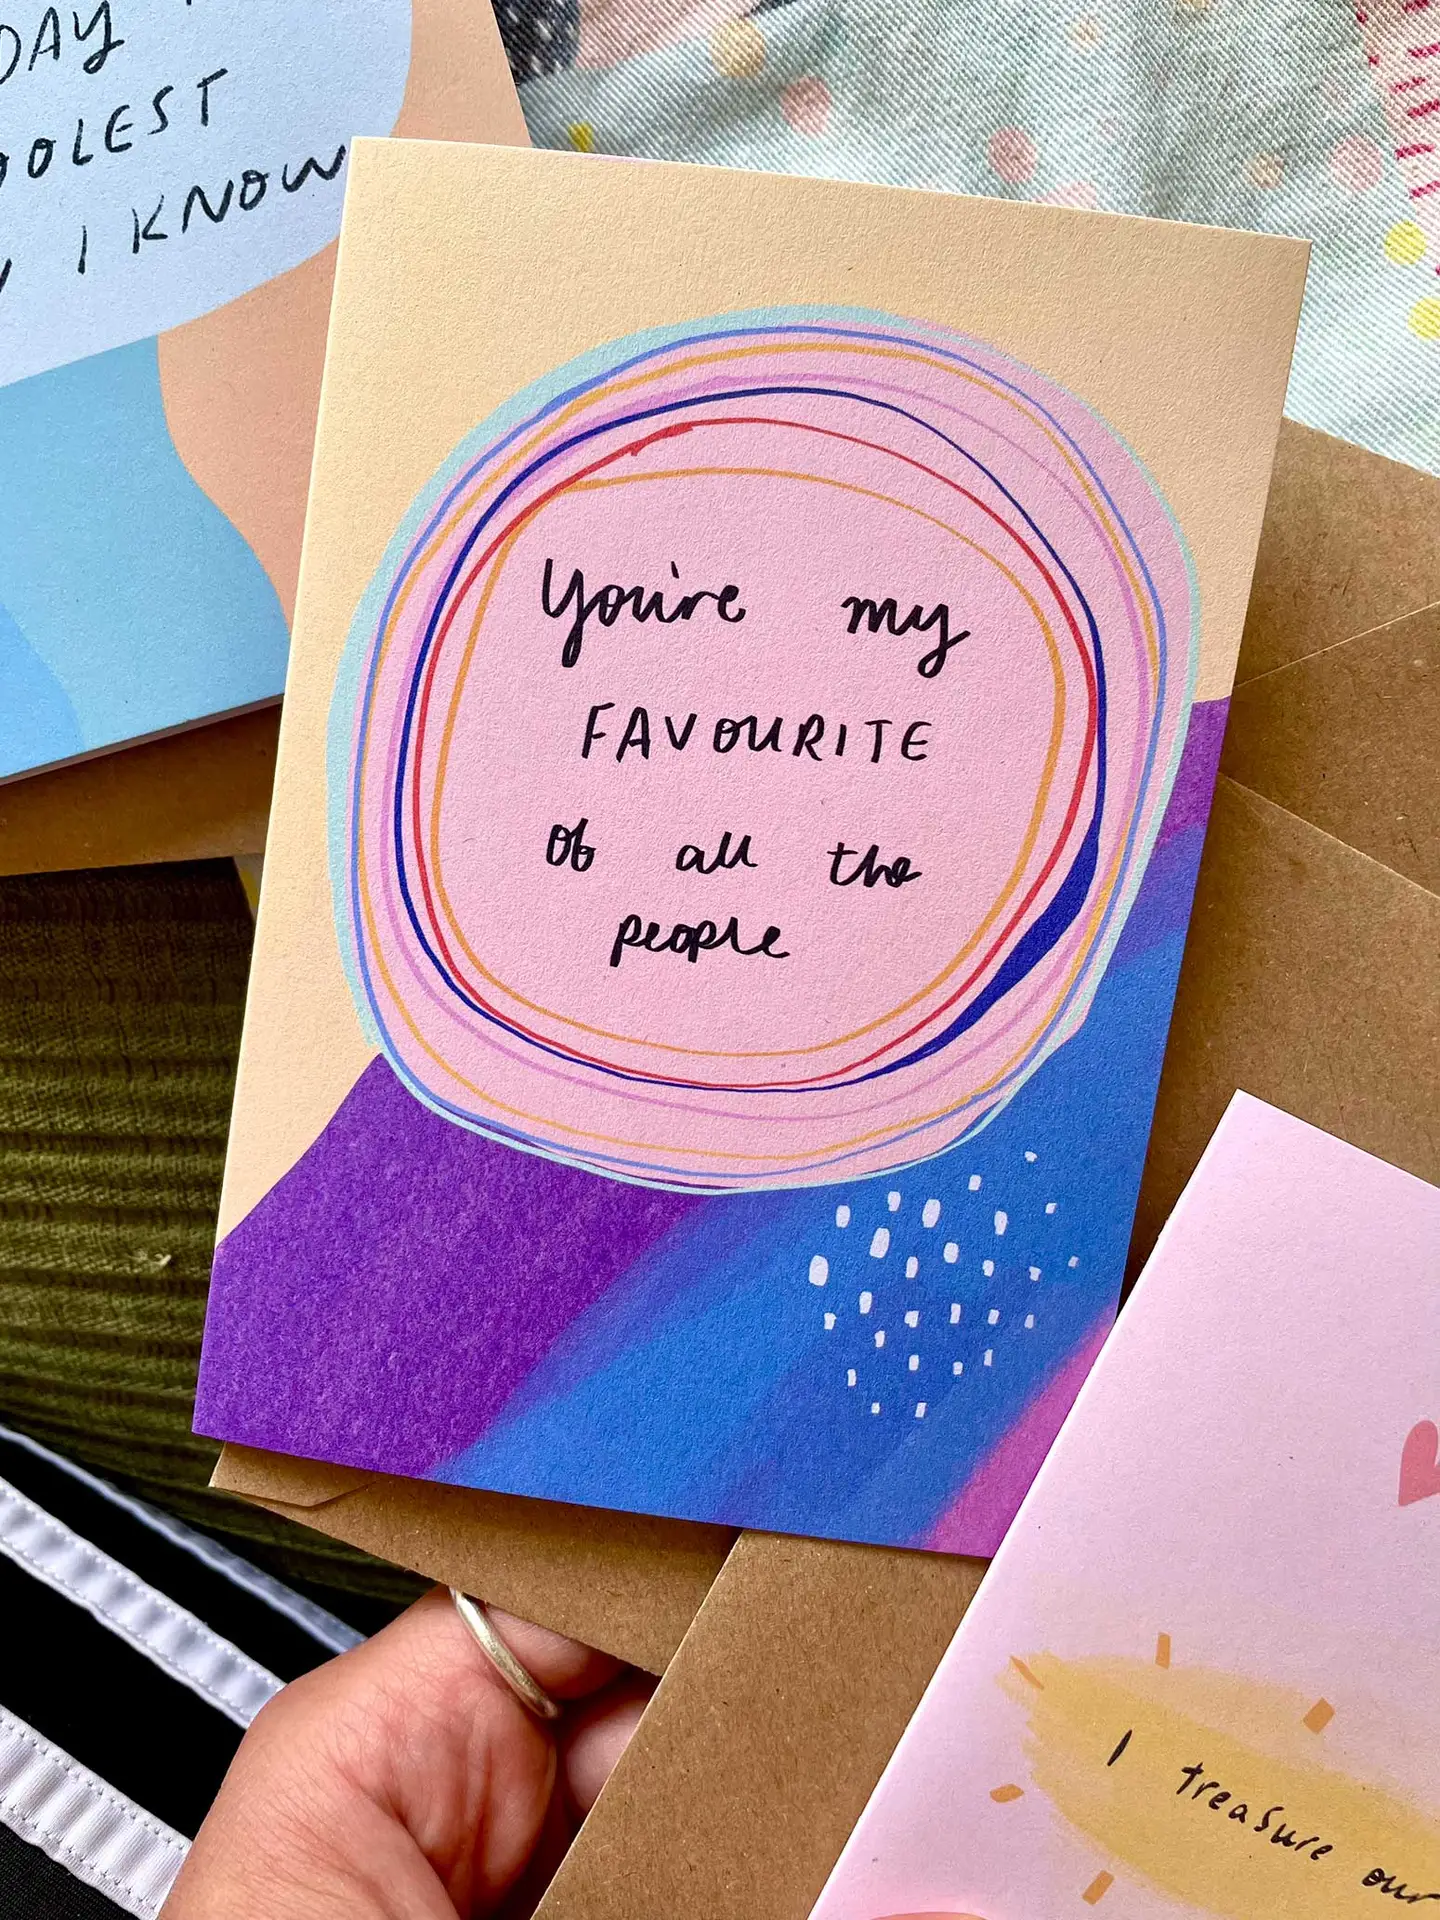 DAY
OOLEST
I KNOW
You're my
FAVOURITE
of all the
people
I treasure our